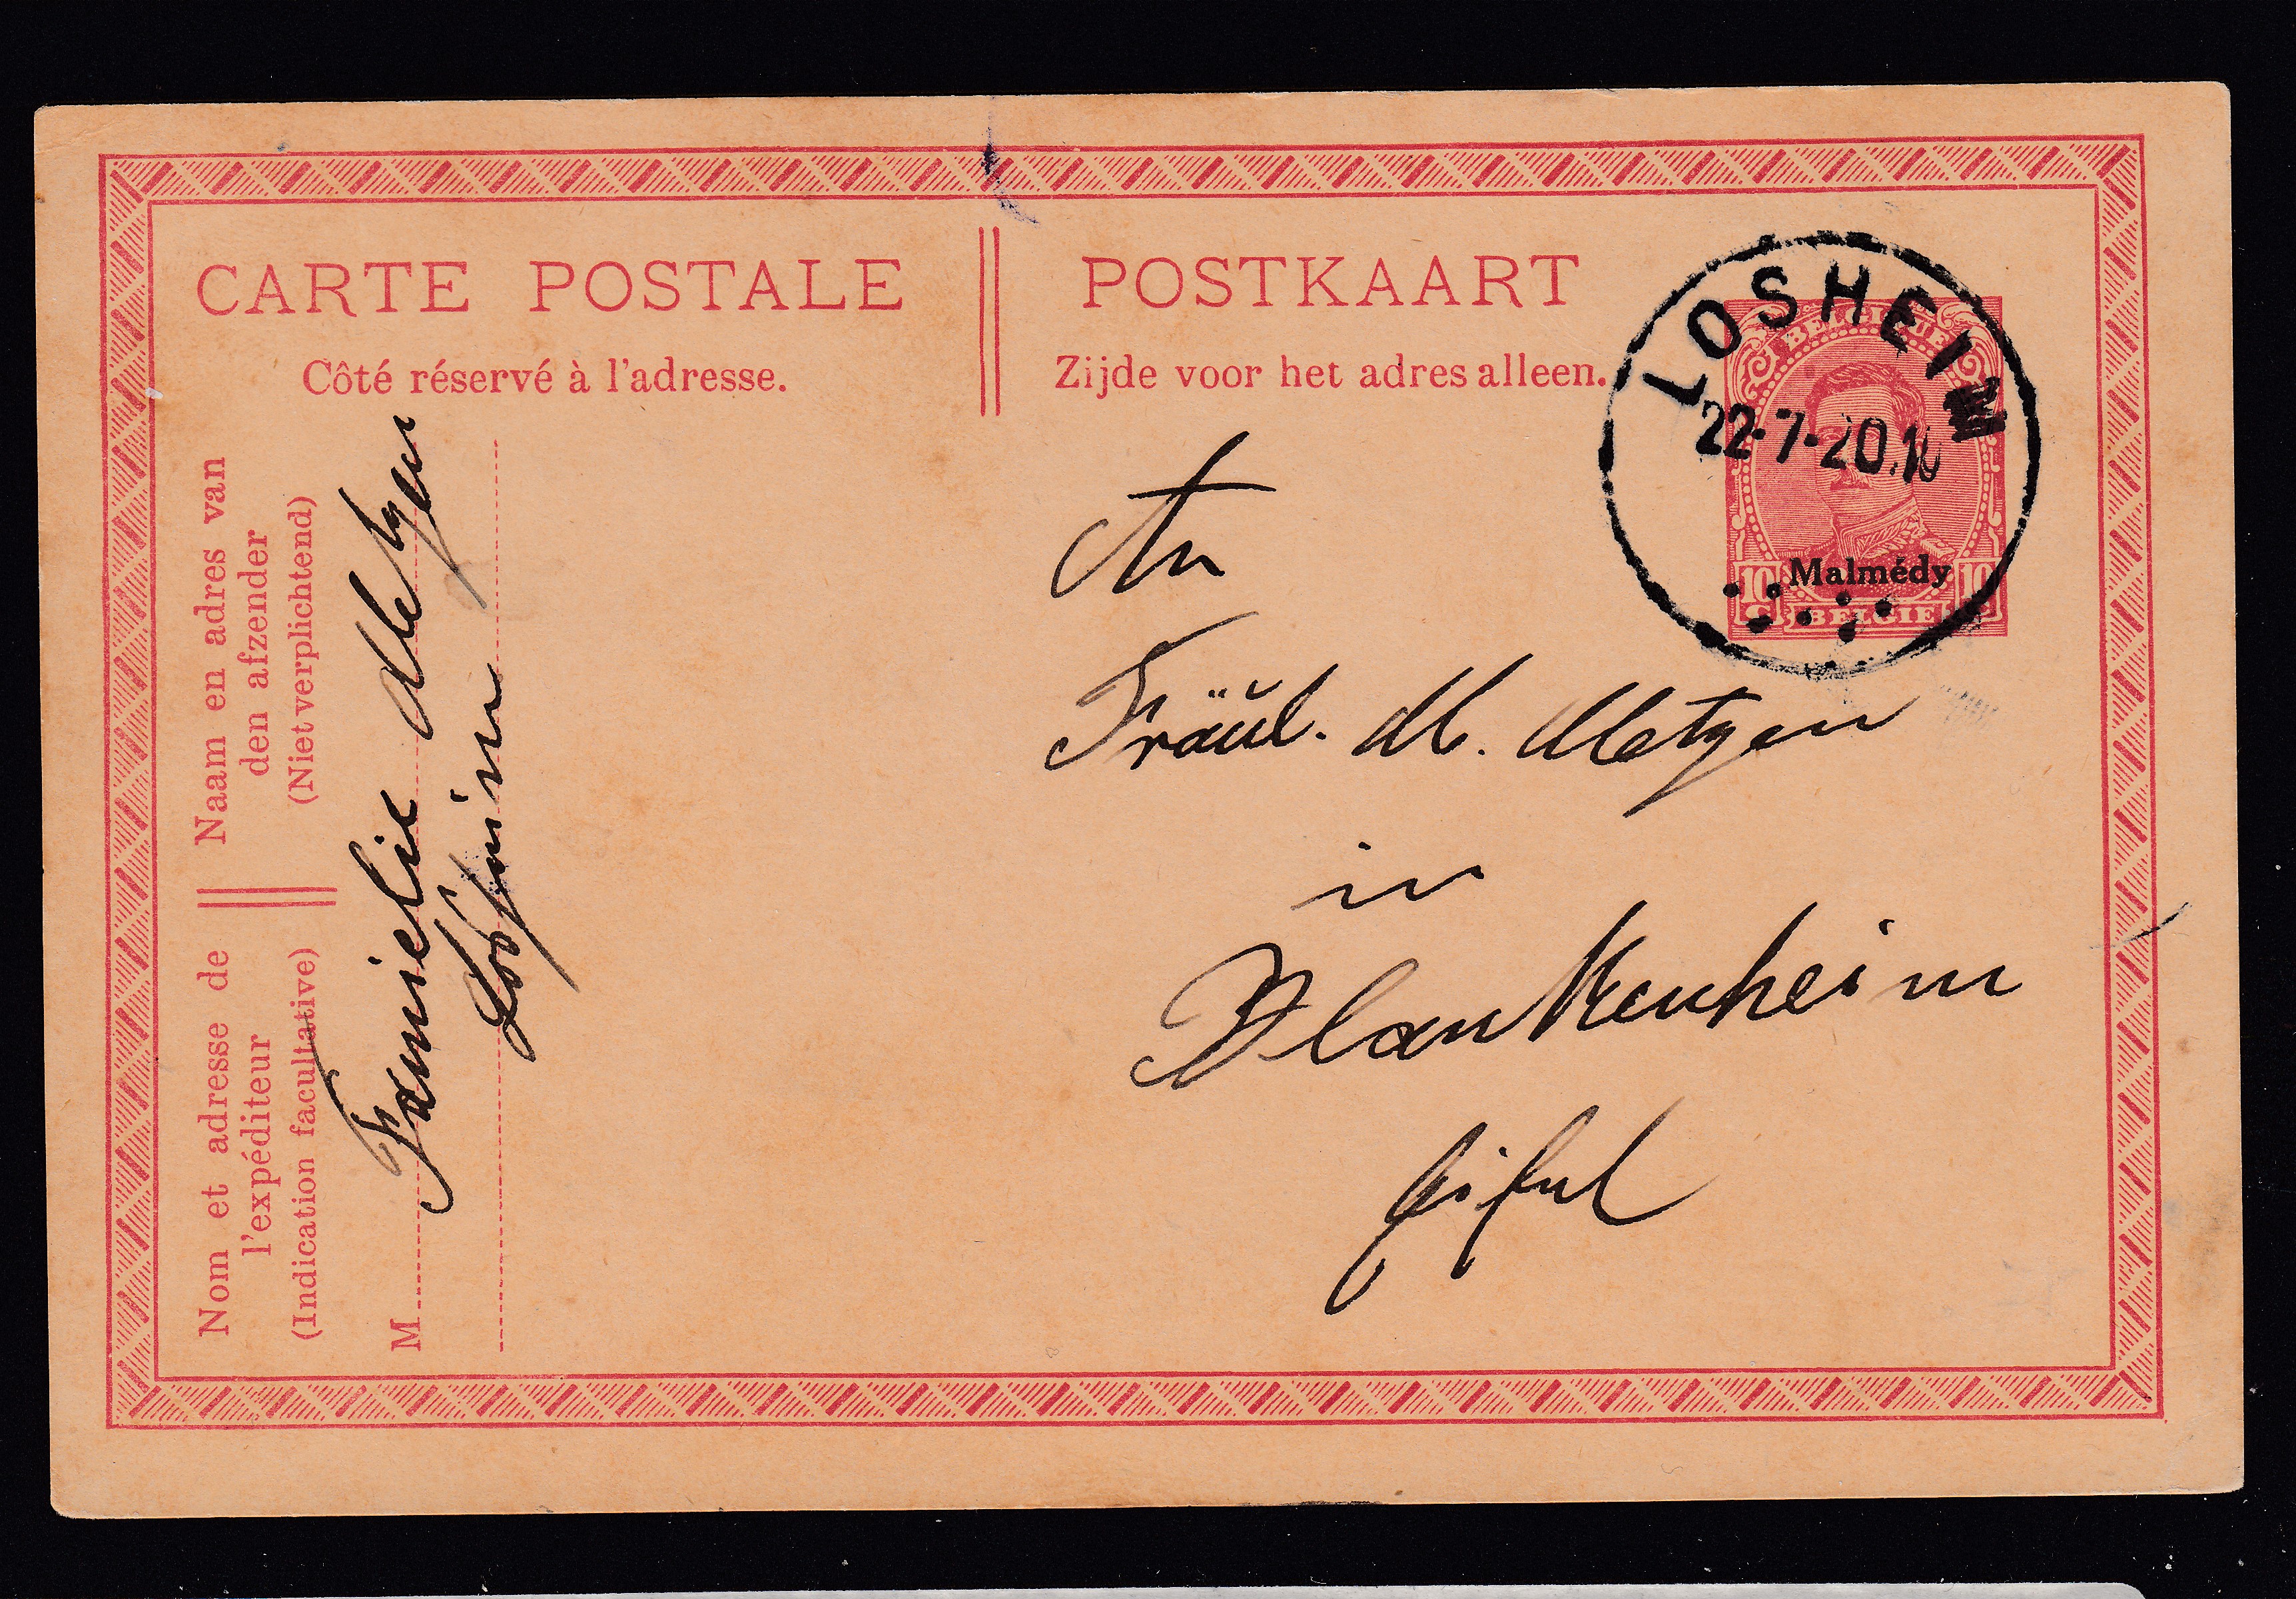 CARTE POSTALE
Côté réservé à l'adresse.
POSTKAART
Zijde voor het adres alleen.
LOSHEIM
22-7-20.
BELGIQUE
Malmédy
10 C 10 C
BELGIË
Naam en adres van
den afzender
(Niet verplichtend)
Nom et adresse de
l'expéditeur
(Indication facultative)
M
Familie Metzen
Losheim
An
Fräul. M. Metzen
in
Blankenheim
Eifel